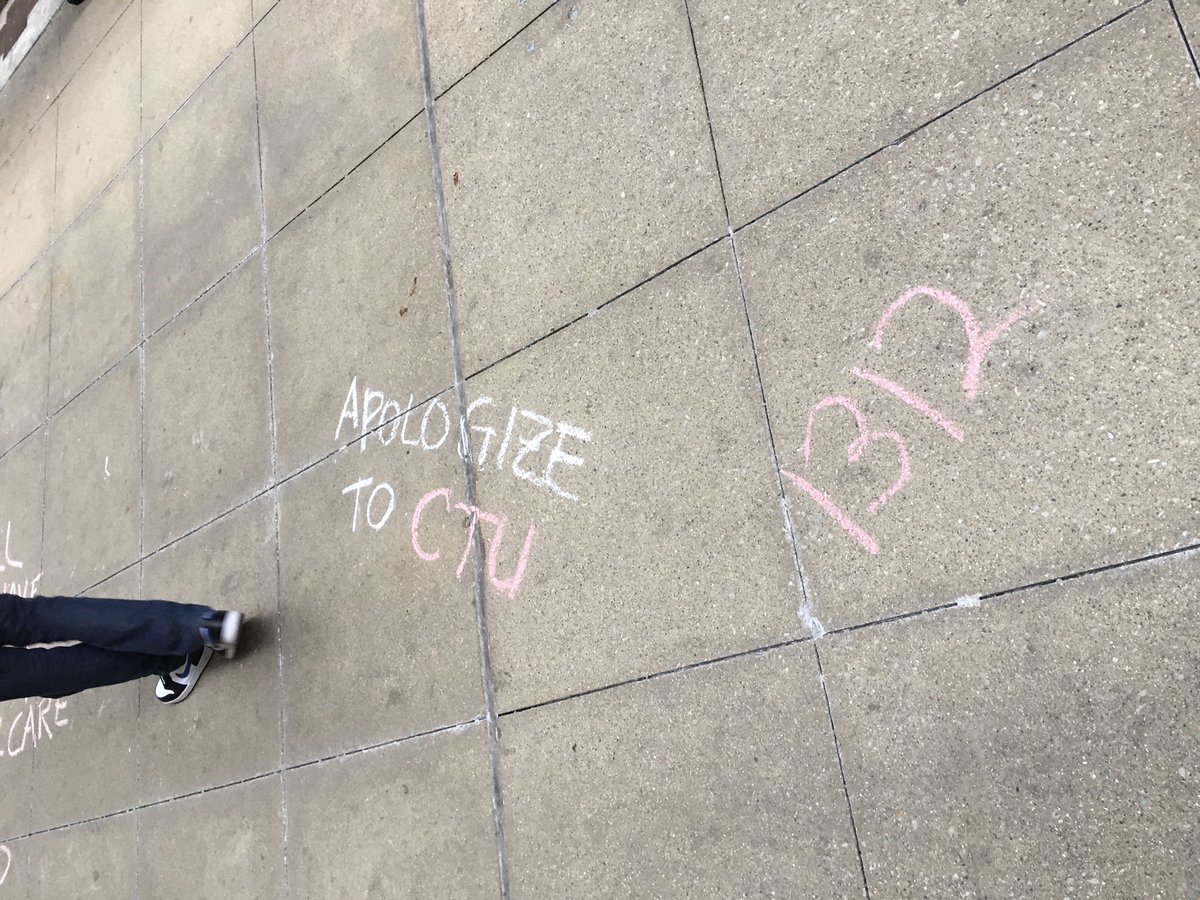 APOLOGIZE
TO CTU
1312
CARE